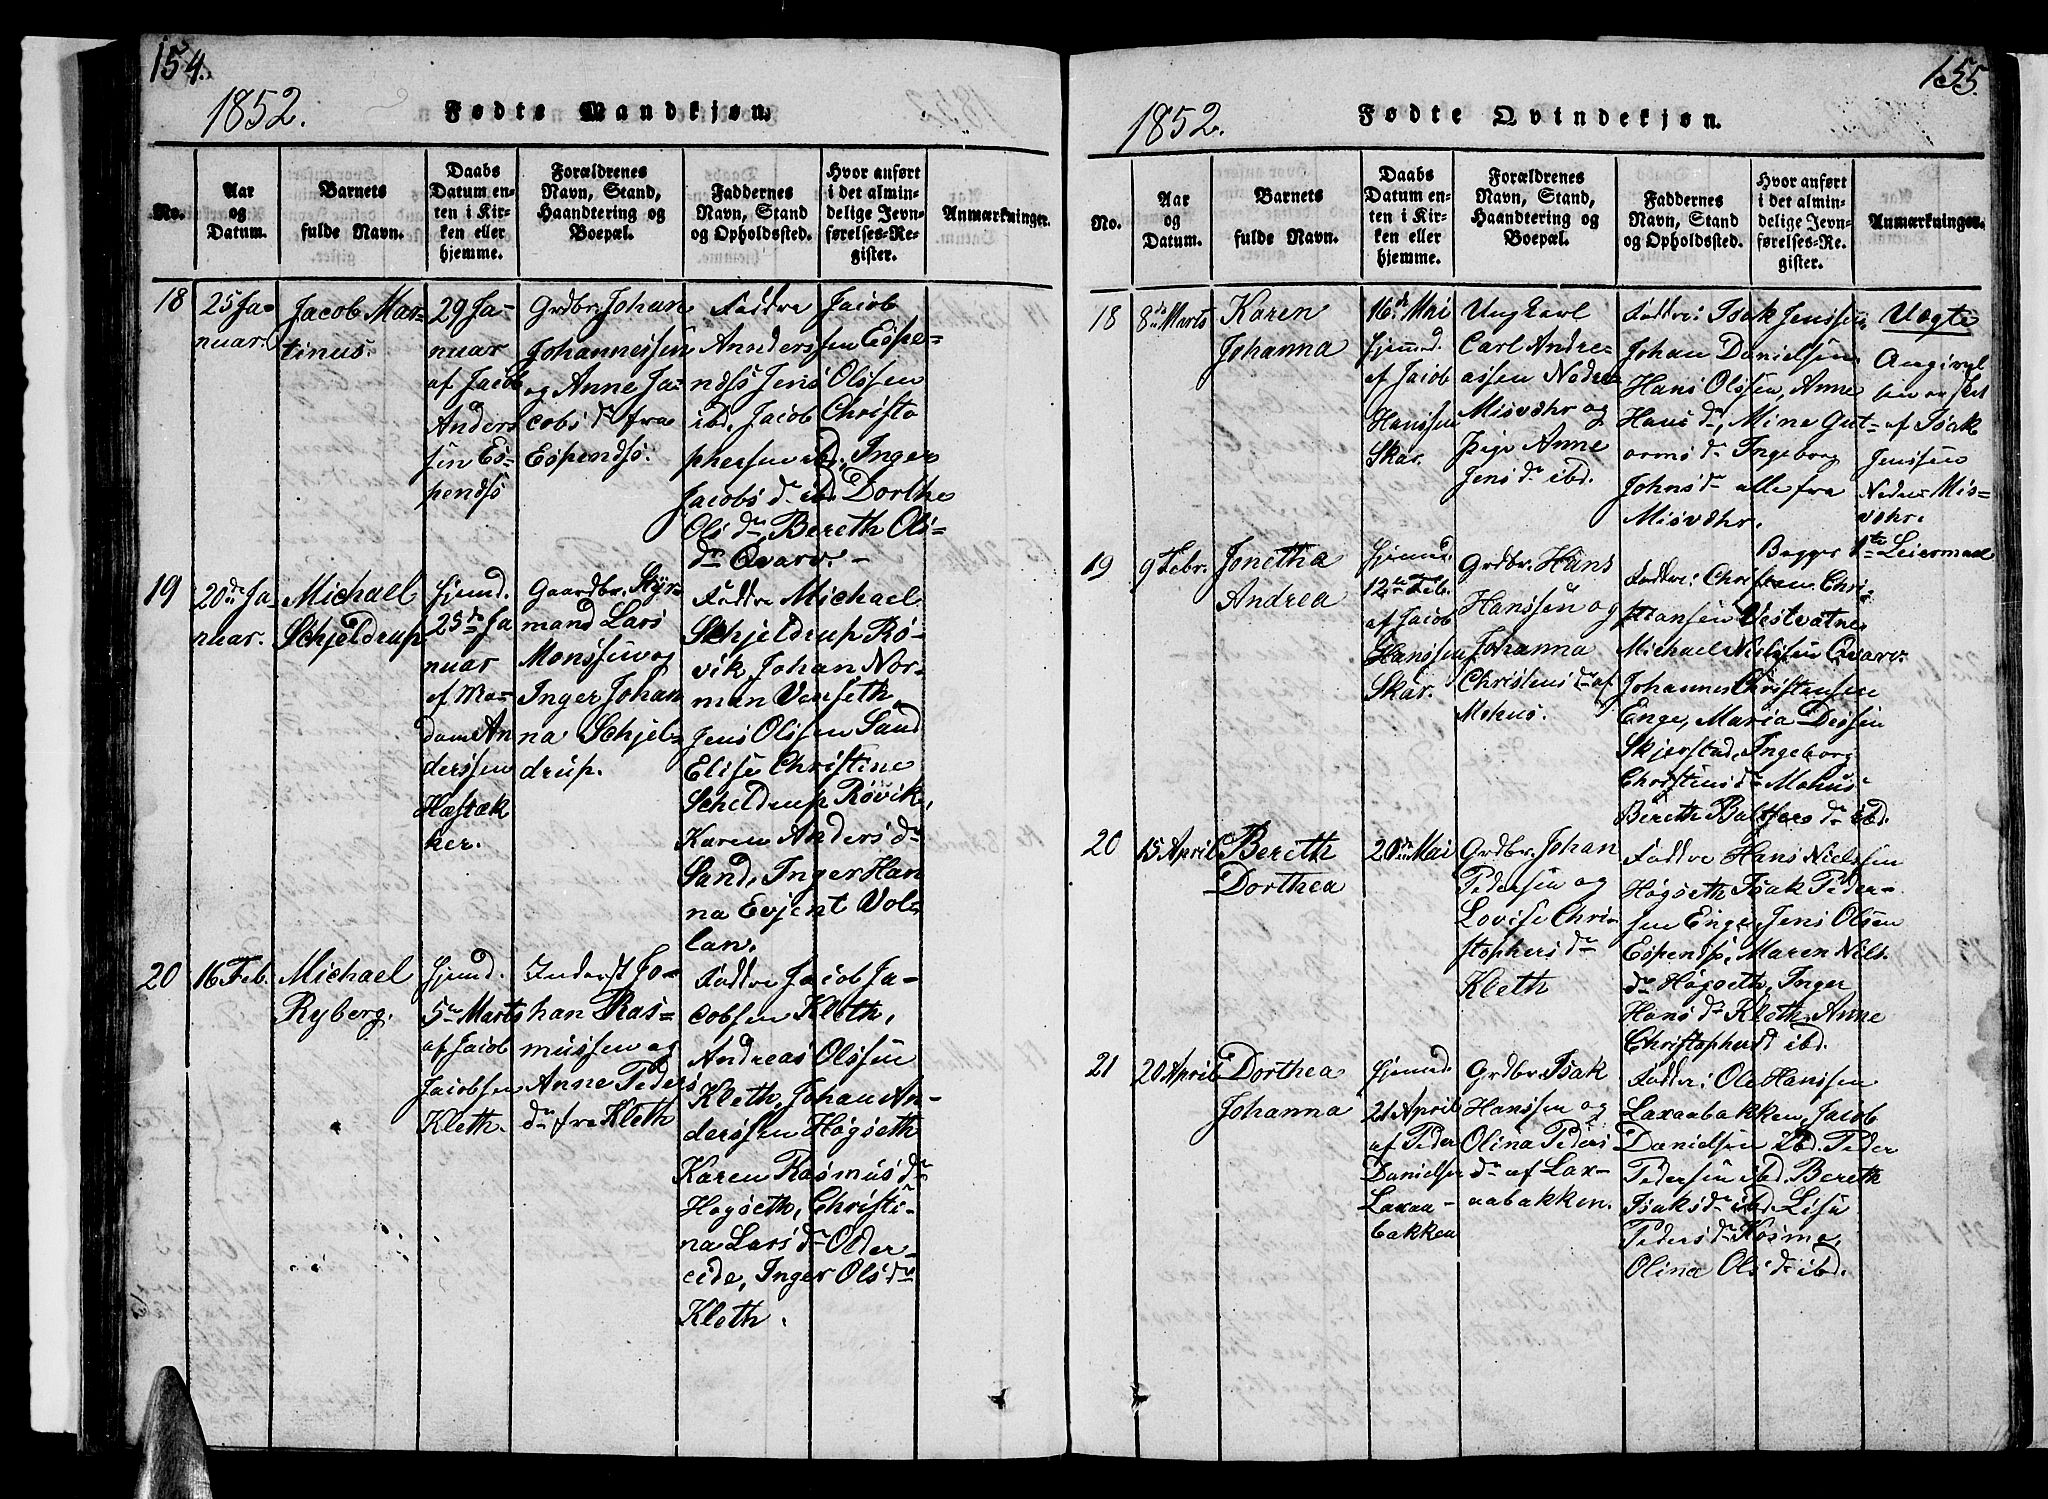 154.
1852.
Fødte Mandkjøn.
No.
Aar
og
Datum.
Barnets
fulde Navn.
Daabs
Datum en-
ten i Kir-
ken eller
hjemme.
Forældrenes
Navn, Stand,
Haandtering og
Boepæl.
Faddernes
Navn, Stand
og Opholdssted.
Hvor anført
i det almin-
delige Jevn-
førelses-Re-
gister.
Anmærkninger.
18
25 Ja-
nuar.
Jacob Mar-
tinus.
29 Ja-
nuar
af Jacob
Anders
sen Es-
pendsö
Grdbr. Johan
Johannessen
og Anne Ja-
cobsdr fra
Espendsö.
Faddre Jacob
Annderssen Espe-
ndsö Jens Olssen
ibd. Jacob Christo
phersen ibd. Inger
Jacobsdr ibd. Dorthe
Olsdr, Bereth Ols-
dr Qvarv. –
19
20de Ja-
nuar.
Michael
Schjeldrup
Hjemd.
25de Ja
nuar
af Ma-
dame An
derssen
Hæstæk
ker.
Gaardbr. Styr-
mand Lars
Monssen og
Inger Johan
na Schjel-
drup.
Faddre Michael
Schjeldrup Rö-
vik, Johan Nor-
man Venseth
Jens Olssen Sand
Elise Christine
Scheldrup Rövik,
Karen Andersdr
Sand, Inger Han
na Evjent Vol-
lan.
20
16 Feb.
Michael
Ryberg.
Hjemd.
5te Marts
af Jacob
Jacobsen
Kleth.
Inderst Jo-
han Ras-
mussen og
Anne Peders
dr fra Kleth
Faddre Jacob Ja-
cobsen Kleth,
Andreas Olssen
Kleth, Johan An-
derssen Högseth
Karen Rasmusdr
Hogseth, Christi-
na Larsdr Older-
eide, Inger Olsdr
Kleth.
155.
1852.
Fødte Qvindekjøn.
No.
Aar
og
Datum.
Barnets
fulde Navn.
Daabs
Datum en-
ten i Kir-
ken eller
hjemme.
Forældrenes
Navn, Stand,
Haandtering og
Boepæl.
Faddernes
Navn, Stand
og Opholdssted.
Hvor anført
i det almin-
delige Jevn-
førelses-Re-
gister.
Anmærkninger.
18
8de Marts
Karen
Johanna
16de Mai
hjemd.
af Jacob
Hanssen
Skar.
Ungkarl
Carl Andre-
assen Nedre
Misvæhr og
Pige Anne
Jensdr ibd.
Faddre: Isak Jenssen,
Johan Danielsen
Hans Olssen, Anne
Hansdr, Mine Gut-
ormsdr Ingeborg
Johnsdr alle fra
Misvæhr.
Uægte
Angivel
sen er skt
af Isak
Jenssen
Nedre Mis-
væhr.
Begges 1te Leiermaal
19
9 Febr.
Jonetha
Andrea
Hjemd.
12te Feb.
af Jacob
Hanssen
Skar.
Grdbr. Hans
Hanssen og
Johanna
Christensdr af
Mohus.
Faddre: Christen Chri-
stiansen Vestvatne
Michael Nilssen Qvarv.
Johannes Christensen
Enge, Maria Dessen
Skjerstad, Ingeborg
Christensdr Mohus
Bereth Baltsersdr ibd.
20
15 April
Berith
Dorthea
20de Mai
Grdbr. Johan
Pedersen og
Lovise Chri-
stophersdr
Kleth
Faddre Hans Nielssen
Högseth, Isak Peder-
sen Enge, Jens Olsen
Espendsö, Maren Nils-
dr Högseth, Inger
Hansdr Kleth, Anne
Christophersd ibd.
21
20 April
Dorthea
Johanna
Hjemd.
21 April
af Peder
Danielsen
Laxaa-
bakken
Grdbr. Isak
Hanssen og
Olina Peders
dr af Lax-
aabakken.
Faddre: Ole Hanssen
Laxaabakken, Jacob
Danielsen ibd. Peder
Pedersen ibd. Bereth
Isaksdr ibd. Lise
Pedersdr Kosmo,
Olina Olsdr ibd.